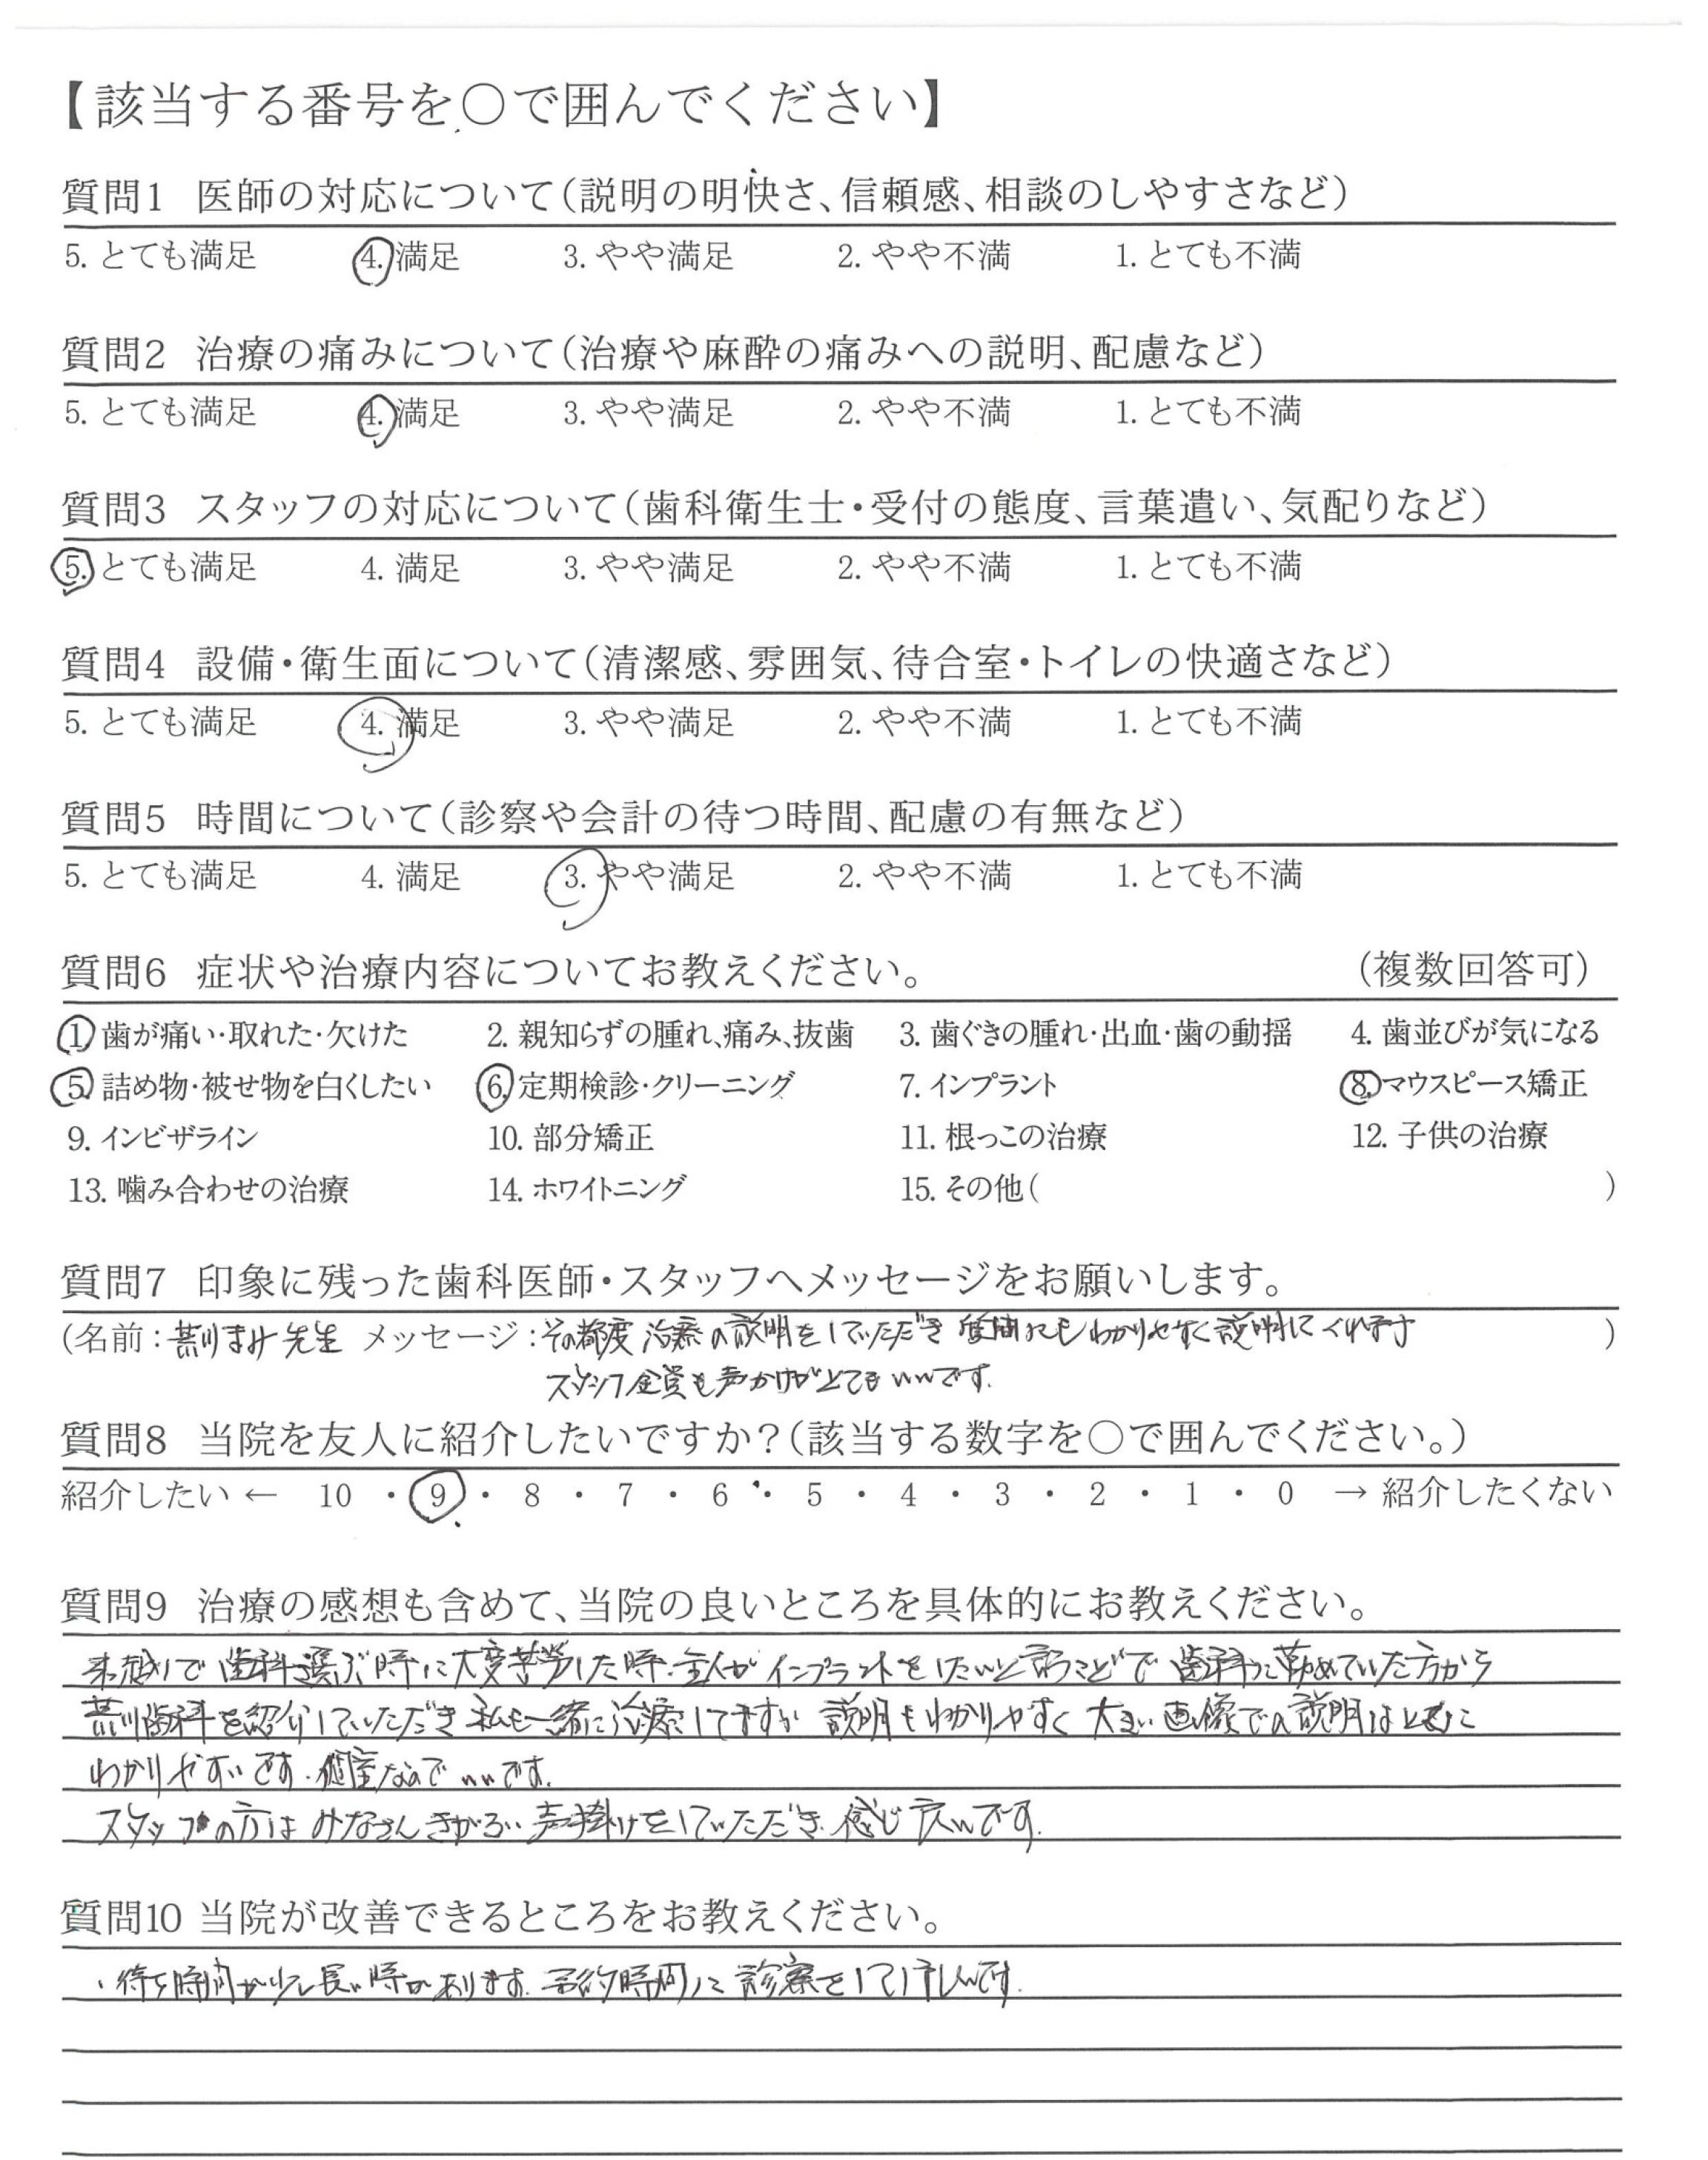 【該当する番号を○で囲んでください】
質問1 医師の対応について(説明の明快さ、信頼感、相談のしやすさなど)
5. とても満足 4. 満足 3. やや満足 2. やや不満 1. とても不満
質問2 治療の痛みについて(治療や麻酔の痛みへの説明、配慮など)
5. とても満足 4. 満足 3. やや満足 2. やや不満 1. とても不満
質問3 スタッフの対応について(歯科衛生士・受付の態度、言葉遣い、気配りなど)
5. とても満足 4. 満足 3. やや満足 2. やや不満 1. とても不満
質問4 設備・衛生面について(清潔感、雰囲気、待合室・トイレの快適さなど)
5. とても満足 4. 満足 3. やや満足 2. やや不満 1. とても不満
質問5 時間について(診察や会計の待つ時間、配慮の有無など)
5. とても満足 4. 満足 3. やや満足 2. やや不満 1. とても不満
質問6 症状や治療内容についてお教えください。 (複数回答可)
1. 歯が痛い・取れた・欠けた 2. 親知らずの腫れ、痛み、抜歯 3. 歯ぐきの腫れ・出血・歯の動揺 4. 歯並びが気になる
5. 詰め物・被せ物を白くしたい 6. 定期検診・クリーニング 7. インプラント 8. マウスピース矯正
9. インビザライン 10. 部分矯正 11. 根っこの治療 12. 子供の治療
13. 噛み合わせの治療 14. ホワイトニング 15. その他( )
質問7 印象に残った歯科医師・スタッフへメッセージをお願いします。
(名前: 先生 メッセージ:その都度 治療の説明をしていただき 質問にもわかりやすく説明してくれます )
スタッフ全員も声かけがとてもいいです.
質問8 当院を友人に紹介したいですか?(該当する数字を○で囲んでください。)
紹介したい ← 10 ・ 9 ・ 8 ・ 7 ・ 6 ・ 5 ・ 4 ・ 3 ・ 2 ・ 1 ・ 0 → 紹介したくない
質問9 治療の感想も含めて、当院の良いところを具体的にお教えください。
で歯科選ぶ時に大変苦労した時.主人がインプラントをしたいと言うことで 歯科に勤めていた方から
荒川歯科を紹介していただき 私も一緒に治療してますが 説明もわかりやすく 大きい画像での説明は
わかりやすいです.個室なのでいいです.
スタッフの方はみなさんきがるい声掛けをしていただき.感じ良いです.
質問10 当院が改善できるところをお教えください。
・待ち時間が少し長い時があります.予約時間に診察をして欲しいです.